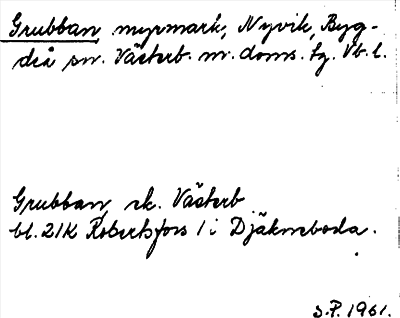 Grubban, myrmark, Nyvik, Byg-
deå sn. Västerb. n. doms. tg. Vb. l.
Grubban, ek. Västerb
bl. 21K Robertsfors 1 i Djäkneboda.
S.P. 1961.